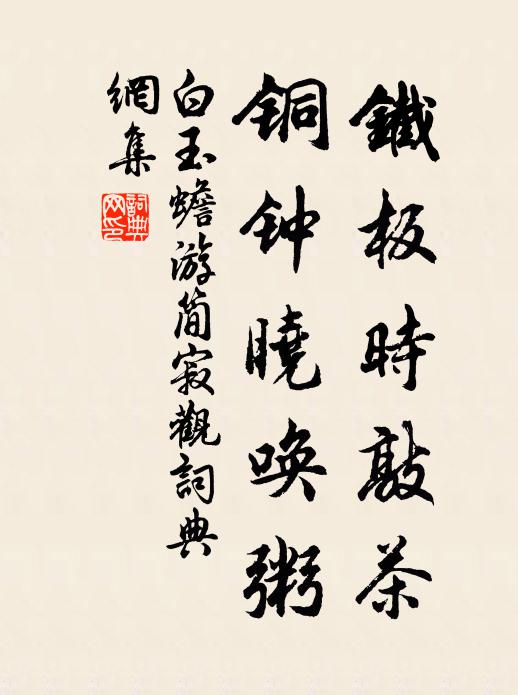 鐵板時敲茶
铜钟曉唤粥
白玉蟾游简寂觀詞典
網集
詞典网印